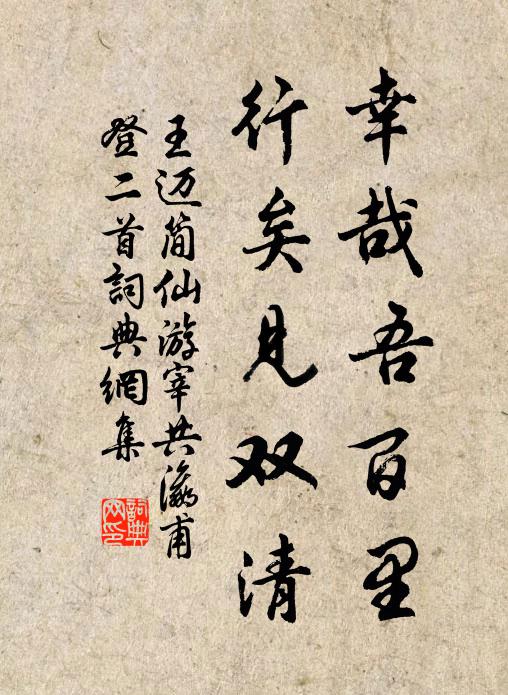 幸哉吾百里
行矣見双清
王迈簡仙游宰共瀛甫
登二首詞典網集
詞典
网印